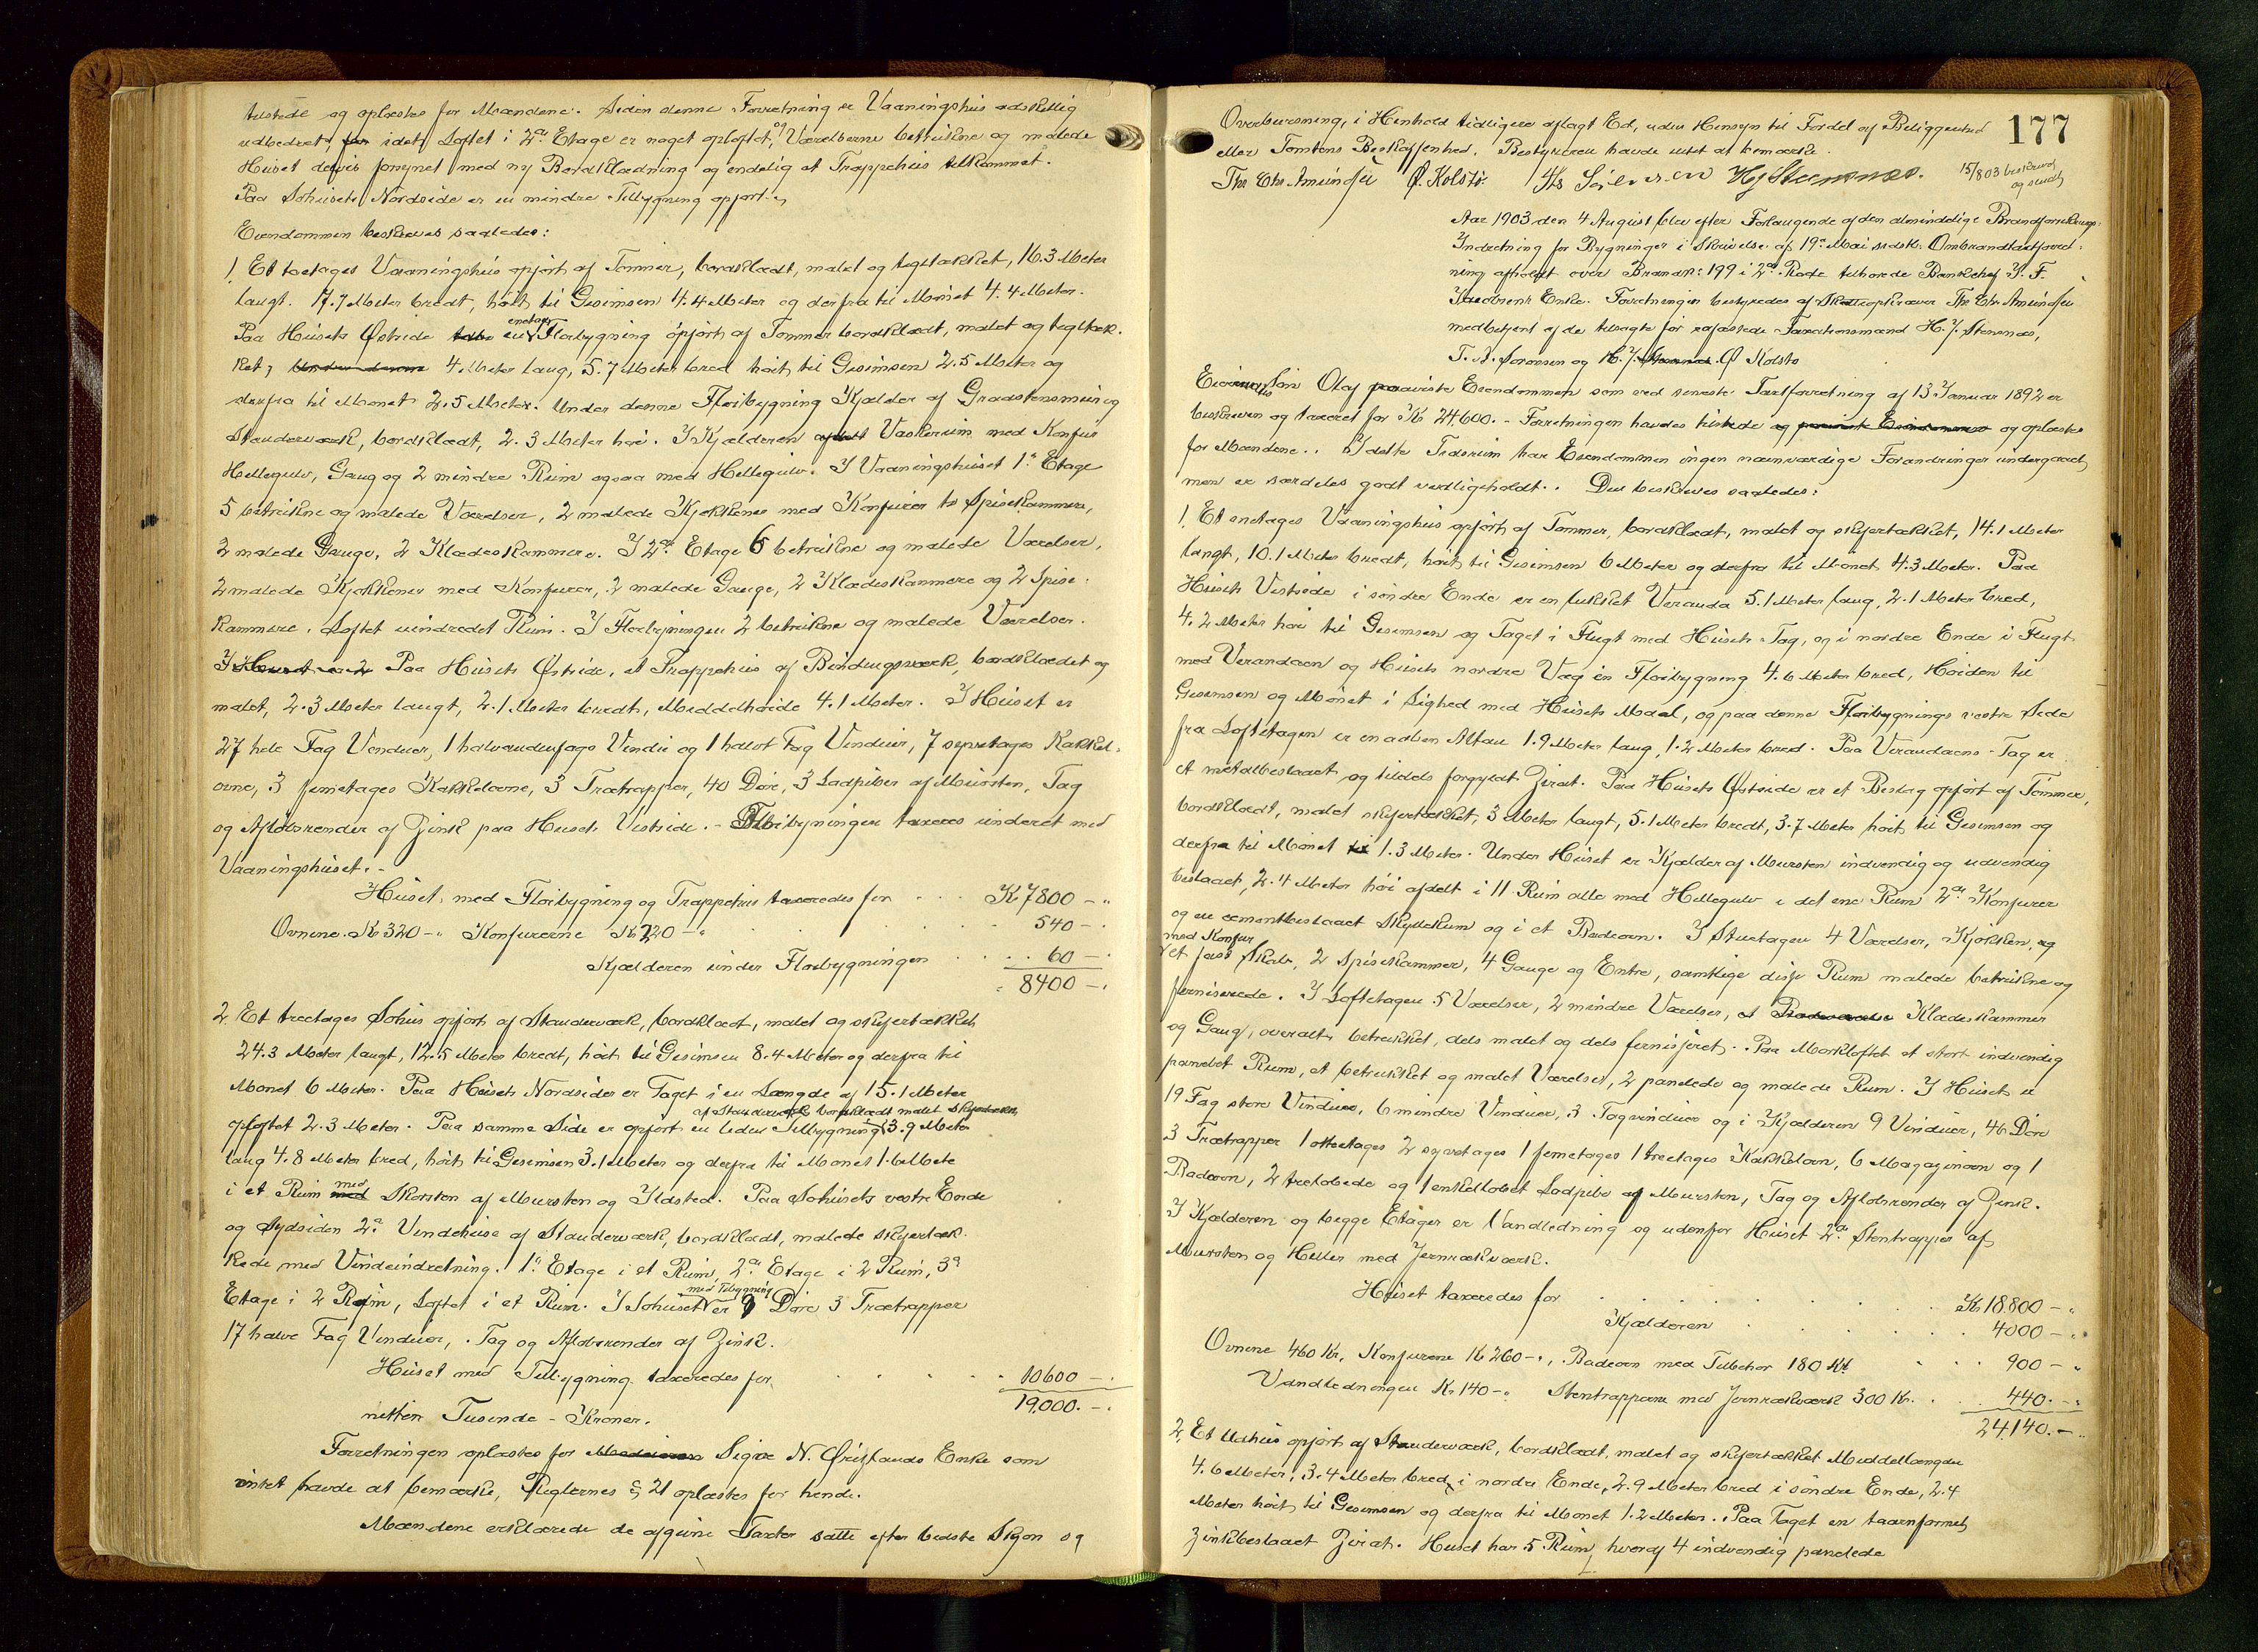 tilstede og oplæstes for Mændene. Siden denne Forretning er Vaaningshus adskillig
udbedret, idet Loftet i 2den Etage er noget opløftet, og Værelserne betrukne og malede
Huset delvis fornynet med ny Bordklædning og endelig et Trappehus tilkommet.
Paa Sohusets Nordside er en mindre Tilbygning opført.
Eiendommen beskrives saaledes:
1. Et toetages Vaaningshus opført af Tømmer, bordklædt, malet og tegltækket, 16.3 Meter
langt. 7.7 Meter bredt, høit til Gesimsen 4.4 Meter og derfra til Mønet 4.4 Meter.
Paa Husets Østside en enetages Fløibygning opført af Tømmer bordklædt, malet og tegltæk-
ket, 4 Meter lang, 5.7 Meter bred høit til Gesimsen 2.5 Meter og
derfra til Mønet 2.5 Meter. Under denne Fløibygning Kjælder af Graastensmur og
Standerværk, bordklædt, 2.3 Meter høi. I Kjælderen Vaskerum med Komfur
Hellegulv, Gang og 2 mindre Rum ogsaa med Hellegulv. I Vaaningshuset 1ste Etage
5 betrukne og malede Værelser, 2 malede Kjøkkener med Komfurer to Spisekammere,
2 malede Gange, 2 Klædeskammere. I 2den Etage 6 betrukne og malede Værelser,
2 malede Kjøkkener med Komfurer, 2 malede Gange, 2 Klædeskammere og 2 Spise-
kammere. Loftet uindredet Rum. I Fløibygningen 2 betrukne og malede Værelser.
Paa Husets Østside, et Trappehus af Bindingsværk, bordklædet og
malet, 2.3 Meter langt, 2.1 Meter bredt, Middelhøide 4.1 Meter. I Huset er
27 hele Fag Vinduer, 1 halvandenfags Vindu og 1 halvt Fag Vinduer, 7 syvetages Kakkel-
ovne, 3 femetages Kakkelovne, 3 Trætrapper, 40 Døre, 3 Ladpiber af Mursten, Tag
og Afløbsrender af Zink paa Husets Vestside. - Fløibygningen taxeres underet med
Vaaningshuset. -
Huset, med Fløibygning og Trappehus taxeredes for . . . Kr 7800 -
Ovnene Kr 320 - Komfurerne Kr 220 - . . . 540 -
Kjælderen under Fløibygningen . . . 60 -
8400 -
2. Et treetages Søhus opført af Standerværk, bordklædt, malet og skifertækket
24.3 Meter langt, 12.5 Meter bredt, høit til Gesimsen 8.4 Meter og derfra til
Mønet 6 Meter. Paa Husets Nordside er Taget i en Længde af 15.1 Meter
opløftet 2.3 Meter. Paa samme Side er opført en liden Tilbygning af Standerværk bordklædt malet skifertækket, 3.9 Meter
lang 4.8 Meter bred, høit til Gesimsen 3.1 Meter og derfra til Mønet 1.6 Meter
i et Rum med Skorsten af Mursten og Ildsted. Paa Søhusets vestre Ende
og Sydsiden 2de Vindehuse af Standerværk, bordklædt, malede skifertæk-
kede med Vindeindretning. 1ste Etage i et Rum, 2den Etage i 2 Rum, 3die
Etage i 2 Rum, Loftet i et Rum. I Søhuset med Tilbygning er 9 Døre 3 Trætrapper
17 halve Fag Vinduer, Tag og Afløbsrender af Zink.
Huset med Tilbygning taxeredes for . . . 10600 -
19,000. -
nitten Tusinde - Kroner.
Forretningen oplæstes for Sigve N. Ørjslands Enke som
intet havde at bemærke, Reglernes § 21 oplæstes for hende.
Mændene erklærede de afgivne Taxter satte efter bedste Skjøn og
177
Overbevisning, i Henhold tidligere aflagt Ed, uden Hensyn til Fordel af Beliggenhed
eller Tomtens Beskaffenhed. Bestyreren havde intet at bemærke.
Ths Chr. Amundsen Ø. Kolstø. Ths Sørensen HJStensnæs.
15/8 03 beskrevet
og sendt
Aar 1903 den 4 August blev efter Forlangende af den almindelige Brandforsikrings-
Indretning for Bygninger i Skrivelse af 19de Mai sidstl. Ombrandtaxtforret-
ning afholdt over Brandno: 199 i 2den Rode tilhørende Bankchef J. F.
Jacobsens Enke. Forretningen bestyredes af Skatteopkræver Ths Chr. Amundsen
medbetjent af de tilsagte før edfæstede Taxationsmænd H. J. Stensnæs,
T. A. Sørensen og Ø Kolstø
Eierindens Søn Olaf paaviste Eiendommen som ved seneste Taxtforretning af 13 Januar 1892 er
beskreven og taxeret for Kr 24,600. - Forretningen havdes tilstede og oplæstes
for Mændene. I dette Tidsrum har Eiendommen ingen nævnværdige Forandringer undergaaet
men er særdeles godt vedligeholdt. Den beskrives saaledes:
1. Et enetages Vaaningshus opført af Tømmer, bordklædt, malet og skifertækket, 14.1 Meter
langt, 10.1 Meter bredt, høit til Gesimsen 6 Meter og derfra til Mønet 4.3 Meter. Paa
Husets Vestside i søndre Ende er en lukket Veranda 5.1 Meter lang, 2.1 Meter bred,
4.2 Meter høi til Gesimsen og Taget i Flugt med Husets Tag, og i nordre Ende i Flugt
med Verandaen og Husets nordre Væg en Fløibygning 4.6 Meter bred, Høiden til
Gesimsen og Mønet i Lighed med Husets Maal, og paa denne Fløibygnings vestre Side
fra Loftetagen er en aaben Altan 1.9 Meter lang, 1.2 Meter bred. Paa Verandaens Tag er
et metalbeslaaet og tildels forgyldt Zirat. Paa Husets Østside er et Bislag opført af Tømmer,
bordklædt, malet skifertækket, 3 Meter langt, 5.1 Meter bredt, 3.7 Meter høit til Gesimsen og
derfra til Mønet 1.3 Meter. Under Huset er Kjælder af Mursten indvendig og udvendig
beslaaet, 2.4 Meter høi afdelt i 11 Rum alle med Hellegulv i det ene Rum 2de Komfurer
og en cementbeslaaet Skyllekum og i et Badeovn. I Stuetagen 4 Værelser, Kjøkken, og
med Komfur
et fast Skab, 2 Spisekammer, 4 Gange og Entre, samtlige disse Rum malede betrukne og
ferniserede. I Loftetagen 5 Værelser, 2 mindre Værelser, et Klædeskammer
og Gang, overalt betrukket, dels malet og dels fernisseret. Paa Mørkloftet et stort indvendig
panelet Rum, et betrukket og malet Værelse, 2 panelede og malede Rum. I Huset er
19 Fag store Vinduer, 6 mindre Vinduer, 3 Tagvinduer og i Kjælderen 9 Vinduer, 46 Døre
3 Trætrapper 1 otteetages 2 syvetages 1 femetages 1 treetages Kakkelovn, 6 Magazinovn og 1
Badeovn, 2 treløbede og 1 enkeltløbet Ladpibe af Mursten, Tag og Afløbsrender af Zink.
I Kjælderen og begge Etager er Vandledning og udenfor Huset 2de Stentrapper af
Mursten og Heller med Jernrækværk.
Huset taxeredes for . . . Kr 18,800 -
Kjælderen . . . 4000 -
Ovnene 460 Kr, Komfurene Kr 260 -, Badeovn med Tilbehør 180 Kr . . . 900 -
Vandledningen Kr 140 - Stentrapperne med Jernrækværk 300 Kr. . . . 440. -
24140. -
2. Et Udhus opført af Standerværk, bordklædt, malet og skifertækket Middellængde
4.6 Meter, 3.4 Meter bred i nordre Ende, 2.9 Meter bred i søndre Ende, 2.4
Meter høit til Gesimsen og derfra til Mønet 1.2 Meter. Paa Taget en taarnformet
zinkbeslaaet Zirat. Huset har 5 Rum, hvoraf 4 indvendig panelede